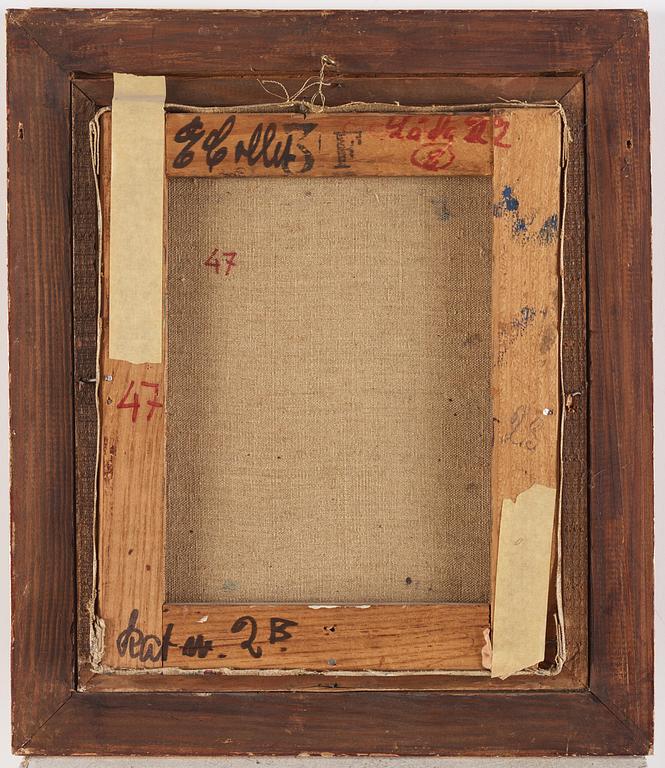 E Collet 3 F
47
47
23
kat nr. 2B